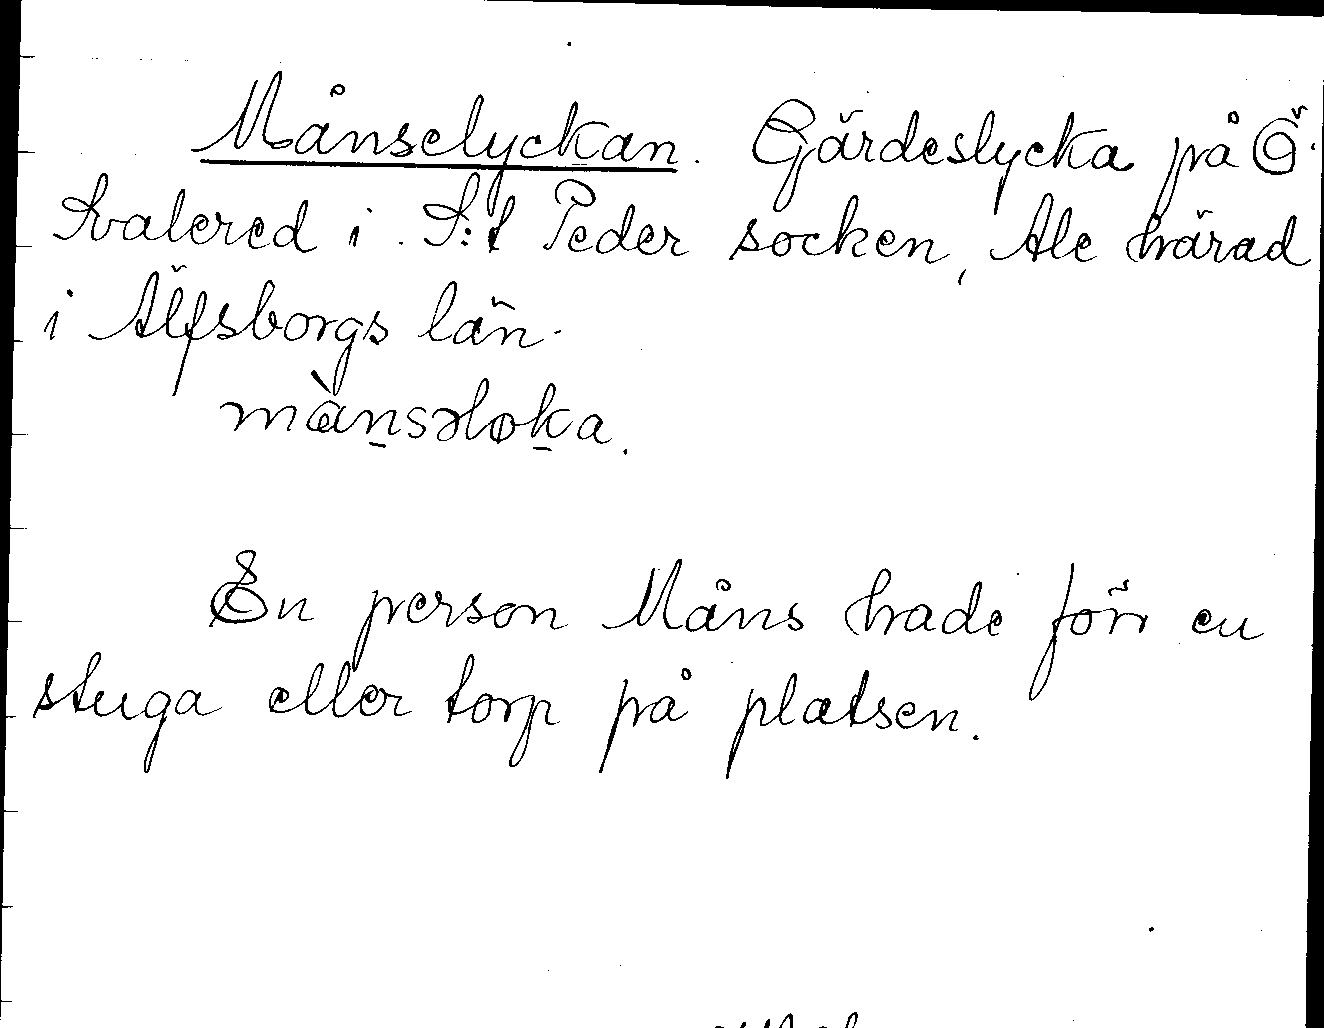 Månselyckan. Gärdeslycka på Ö.
Kvalered i S:t Peder socken, Ale härad
i Älfsborgs län.
En person Måns hade förr en
stuga eller torp på platsen.